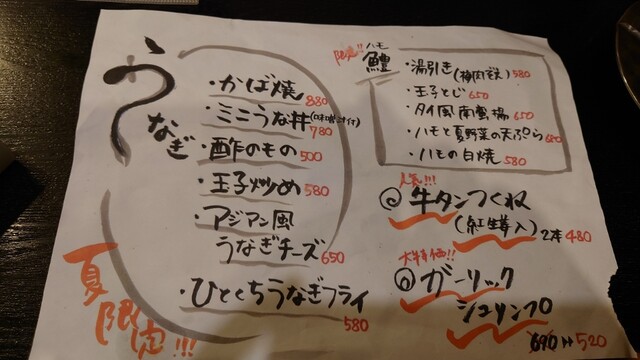 うなぎ
・かば焼 880
・ミニうな丼(味噌汁付) 780
・酢のもの 500
・玉子炒め 580
・アジアン風
うなぎチーズ 650
・ひとくちうなぎフライ
580
夏限定!!!
限定!!
ハモ
鱧
・湯引き(梅肉ポン) 580
・玉子とじ 650
・タイ風南蛮漬 650
・ハモと夏野菜の天ぷら 680
・ハモの白焼 580
人気!!!
◎牛タンつくね
(紅生姜入) 2本 480
大特価!!
◎ガーリック
シュリンプ
690 → 520